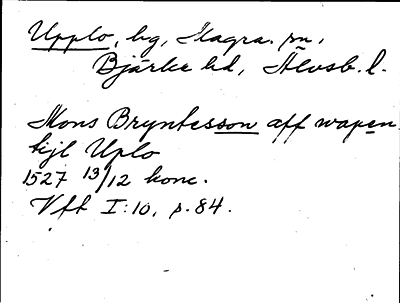 Upplo, bg, Hagra. sn,
Bjärke hd, Älvsb. l.
Mons Bryntesson aff wapen
tijl Uplo
1527 13/12 konc.
Vft I:10, p. 84.